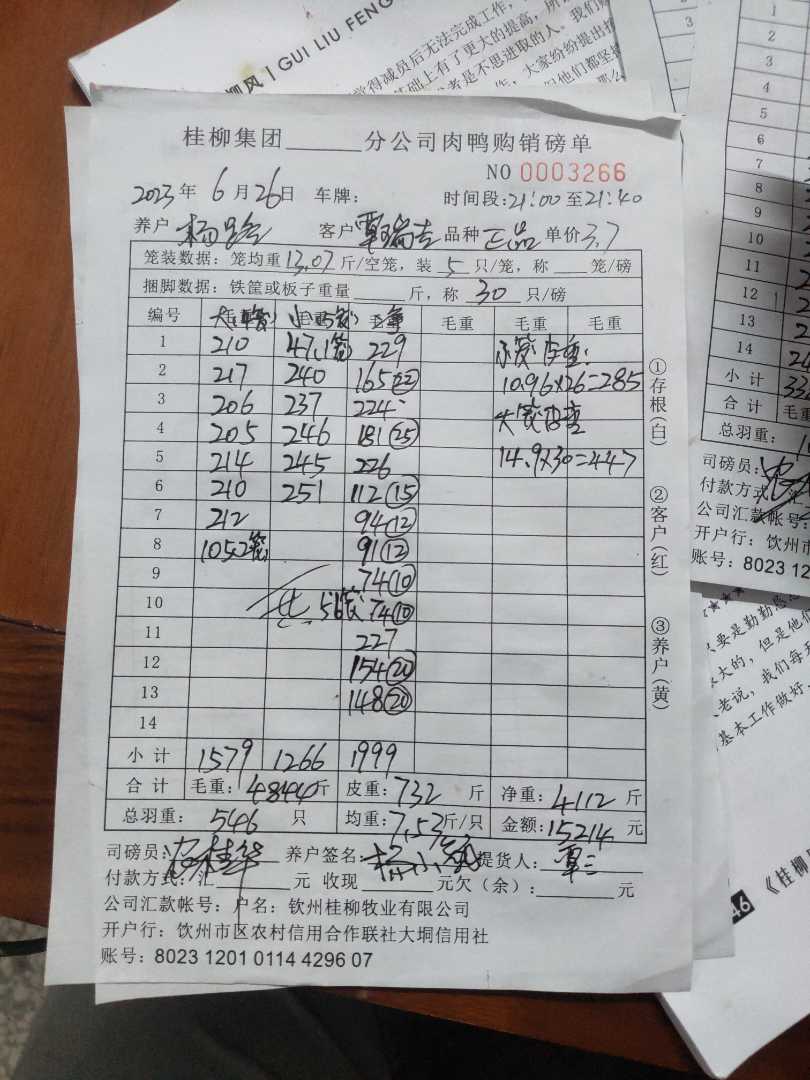 柳风 | GUI LIU FENG
觉得减员后无法完成工作,
基础上有了更大的提高,所
者是不思进取的人。我们
大家纷纷提出
但他们都坚
桂柳集团______分公司肉鸭购销磅单
NO 0003266
2023年6月26日 车牌: 时间段:21:00至21:40
养户 客户 覃瑞吉 品种 正品 单价3.7
笼装数据:笼均重13.07斤/空笼,装5只/笼,称___笼/磅
捆脚数据:铁筐或板子重量____斤,称30只/磅
编号 毛重 毛重 毛重 毛重 毛重 毛重
1 210 47.1 229
2 217 240 165(22) 10.96×26=285
3 206 237 224
4 205 246 181(25)
5 214 245 226 14.9×30=447
6 210 251 112(15)
7 212 94(12)
8 105 91(12)
9 74(10)
10 共56 74(10)
11 227
12 154(20)
13 148(20)
14
小计 1579 1266 1999
合计 毛重:4844斤 皮重:732斤 净重:4112斤
总羽重:546只 均重:7.53斤/只 金额:15214元
司磅员: 养户签名: 提货人:覃三
付款方式:汇______元 收现______元欠(余):______元
公司汇款帐号:户名:钦州桂柳牧业有限公司
开户行:钦州市区农村信用合作联社大垌信用社
账号:8023 1201 0114 4296 07
①存根(白)
②客户(红)
③养户(黄)
1
2
3
4
5
6
7
8
9
10
11
12
13
14
小计
合计 毛重
总羽重:
司磅员:
付款方式:汇
公司汇款帐号
开户行:钦州市
账号:8023 12
要是勤勤恳恳
大的,但是他们
老说,我们每天
基本工作做好,
46
《桂柳风